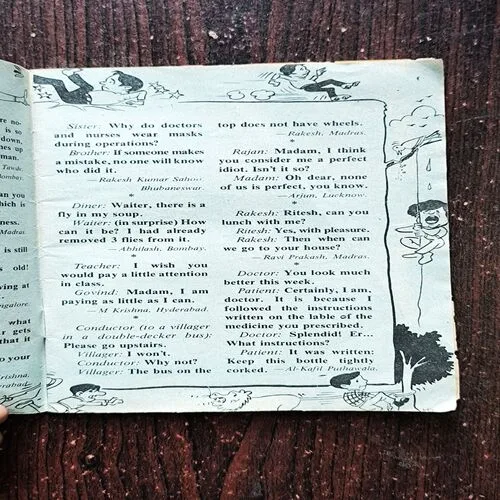 re no-
is so
down,
hes up
man.
Tawde,
Bombay.
an you
which is
ness.
Madras.
is still
old!
ving at
angalore.
what
r gets
that it
to your
Krishna,
Hyderabad.
Sister: Why do doctors
and nurses wear masks
during operations?
Brother: If someone makes
a mistake, no one will know
who did it.
—Rakesh Kumar Sahoo,
Bhubaneswar.
*
Diner: Waiter, there is a
fly in my soup.
Waiter: (in surprise) How
can it be? I had already
removed 3 flies from it.
—Abhilash, Bombay.
*
Teacher: I wish you
would pay a little attention
in class.
Govind: Madam, I am
paying as little as I can.
—M Krishna, Hyderabad.
*
Conductor (to a villager
in a double-decker bus):
Please go upstairs.
Villager: I won't.
Conductor: Why not?
Villager: The bus on the
top does not have wheels.
—Rakesh, Madras.
*
Rajan: Madam, I think
you consider me a perfect
idiot. Isn't it so?
Madam: Oh dear, none
of us is perfect, you know.
—Arjun, Lucknow.
*
Rakesh: Ritesh, can you
lunch with me?
Ritesh: Yes, with pleasure.
Rakesh: Then when can
we go to your house?
—Ravi Prakash, Madras.
*
Doctor: You look much
better this week.
Patient: Certainly, I am,
doctor. It is because I
followed the instructions
written on the lable of the
medicine you prescribed.
Doctor: Splendid! Er...
What instructions?
Patient: It was written:
Keep this bottle tightly
corked. —Al-Kafil Puthawala.